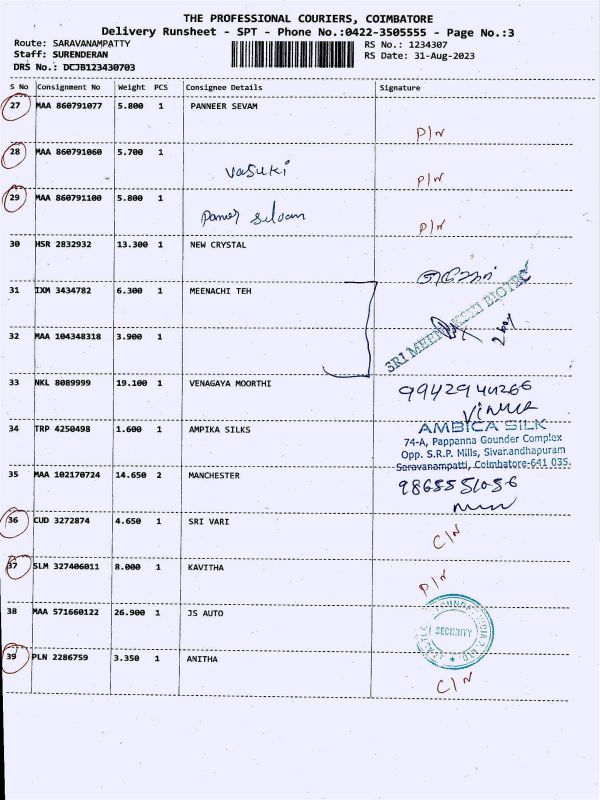 THE PROFESSIONAL COURIERS, COIMBATORE
Delivery Runsheet - SPT - Phone No.:0422-3505555 - Page No.:3
Route: SARAVANAMPATTY RS No.: 1234307
Staff: SURENDERAN RS Date: 31-Aug-2023
DRS No.: DCJB123430703
S No Consignment No Weight PCS Consignee Details Signature
27 MAA 860791077 5.800 1 PANNEER SEVAM
P/N
28 MAA 860791060 5.700 1
Vasuki P/N
29 MAA 860791100 5.800 1
P/N
30 HSR 2832932 13.300 1 NEW CRYSTAL
31 IXM 3434782 6.300 1 MEENACHI TEH
SRI MEENAKSHI BIOTEC
32 MAA 104348318 3.900 1
33 NKL 8089999 19.100 1 VENAGAYA MOORTHI
9942944266
34 TRP 4250498 1.600 1 AMPIKA SILKS
AMBICA SILK
74-A, Pappanna Gounder Complex
Opp. S.R.P. Mills, Sivanandhapuram
Saravanampatti, Coimbatore-641 035.
35 MAA 102170724 14.650 2 MANCHESTER
36 CUD 3272874 4.650 1 SRI VARI
C/N
37 SLM 327406011 8.000 1 KAVITHA
P/N
38 MAA 571660122 26.900 1 JS AUTO
SECURITY
39 PLN 2286759 3.350 1 ANITHA
C/N